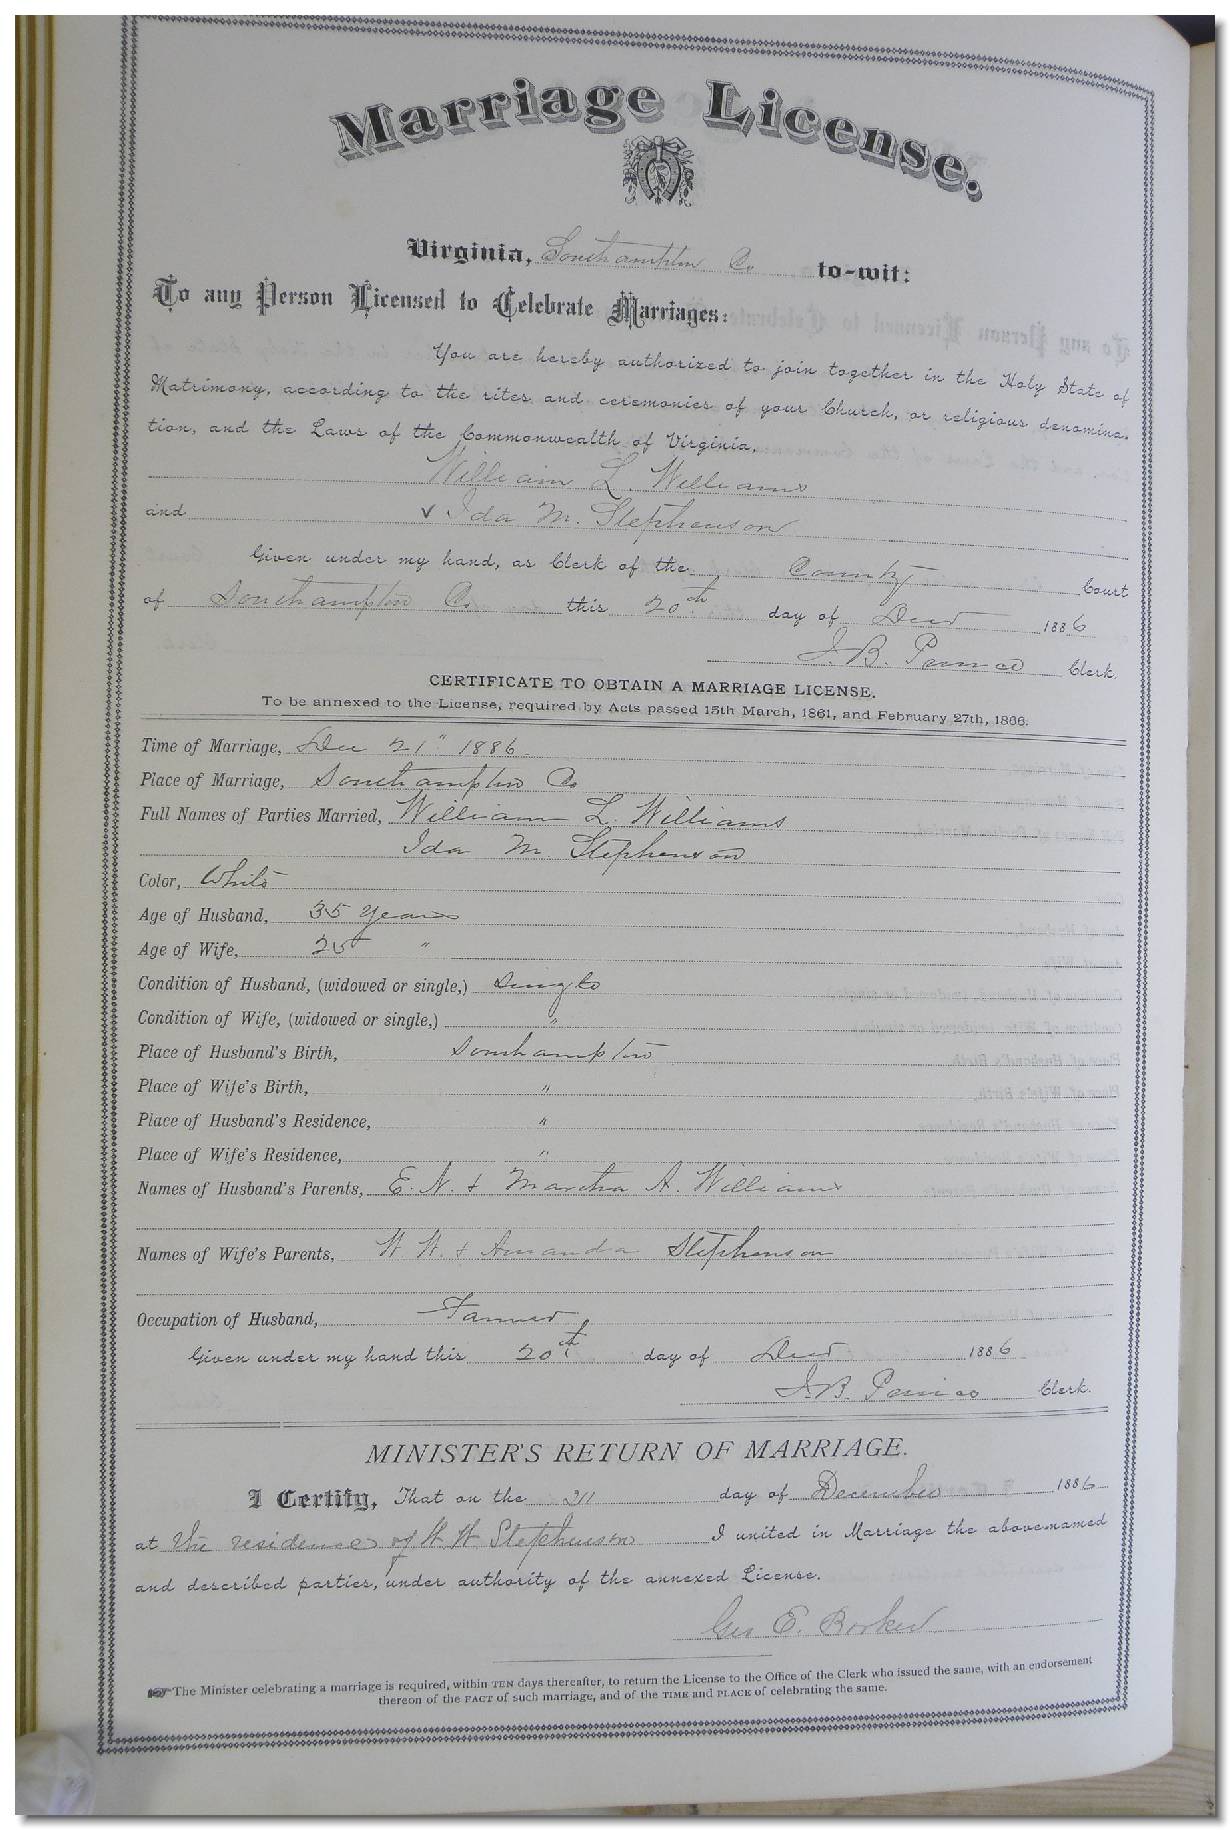 Marriage License.
Virginia, Southampton Co to-wit:
To any Person Licensed to Celebrate Marriages:
You are hereby authorized to join together in the Holy State of
Matrimony, according to the rites and ceremonies of your Church, or religious denomina-
tion, and the Laws of the Commonwealth of Virginia,
William L. Williams
and ✓ Ida M. Stephenson
Given under my hand, as Clerk of the County Court
of Southampton Co this 20th day of 1886
J. B. Clerk.
CERTIFICATE TO OBTAIN A MARRIAGE LICENSE.
To be annexed to the License, required by Acts passed 15th March, 1861, and February 27th, 1866.
Time of Marriage, Dec 21" 1886
Place of Marriage, Southampton Co
Full Names of Parties Married, William L. Williams
Ida M Stephenson
Color, White
Age of Husband, 35 Years
Age of Wife, 25 "
Condition of Husband, (widowed or single,) Single
Condition of Wife, (widowed or single,) "
Place of Husband's Birth, Southampton
Place of Wife's Birth, "
Place of Husband's Residence, "
Place of Wife's Residence, "
Names of Husband's Parents, E. N. & Martha A. Williams
Names of Wife's Parents, W W. & Amanda Stephenson
Occupation of Husband, Farmer
Given under my hand this 20th day of 1886
J. B. Clerk.
MINISTER'S RETURN OF MARRIAGE.
I Certify, That on the 21 day of December 1886
at the residence of W W Stephenson I united in Marriage the above-named
and described parties, under authority of the annexed License.
Geo E. Booker
The Minister celebrating a marriage is required, within TEN days thereafter, to return the License to the Office of the Clerk who issued the same, with an endorsement
thereon of the FACT of such marriage, and of the TIME and PLACE of celebrating the same.